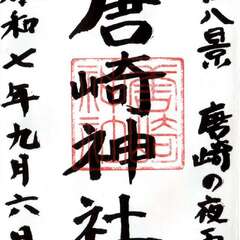 八景 唐崎の夜雨
唐崎神社
唐崎神社
令和七年九月六日